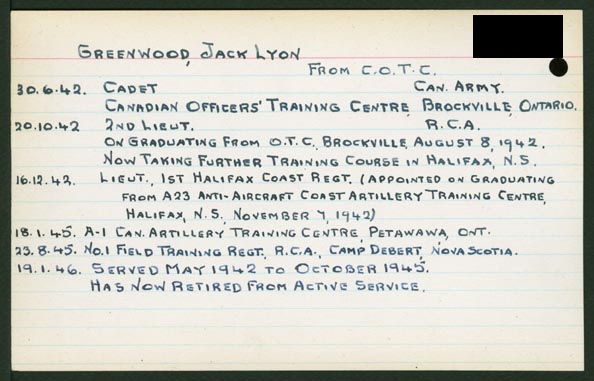 GREENWOOD, JACK LYON
FROM C.O.T.C.
30.6.42. CADET CAN. ARMY.
CANADIAN OFFICERS' TRAINING CENTRE, BROCKVILLE, ONTARIO.
20.10.42 2ND LIEUT. R.C.A.
ON GRADUATING FROM O.T.C., BROCKVILLE, AUGUST 8, 1942.
NOW TAKING FURTHER TRAINING COURSE IN HALIFAX, N.S.
16.12.42. LIEUT., 1ST HALIFAX COAST REGT. (APPOINTED ON GRADUATING
FROM A23 ANTI-AIRCRAFT COAST ARTILLERY TRAINING CENTRE,
HALIFAX, N.S., NOVEMBER 7, 1942)
18.1.45. A-1 CAN. ARTILLERY TRAINING CENTRE, PETAWAWA, ONT.
23.8.45. NO.1 FIELD TRAINING REGT., R.C.A., CAMP DEBERT, NOVA SCOTIA.
19.1.46. SERVED MAY 1942 TO OCTOBER 1945.
HAS NOW RETIRED FROM ACTIVE SERVICE.